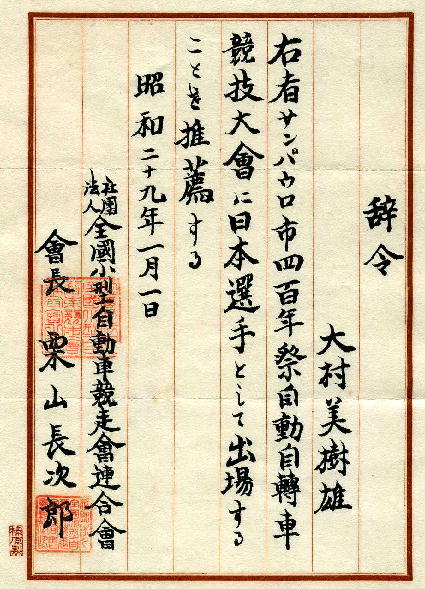 辞令
大村美樹雄
右者サンパウロ市四百年祭自動自轉車
競技大會に日本選手として出場する
ことを推薦する
昭和二十九年一月一日
社團法人全國小型自動車競走會連合會
會長 栗山長次郎